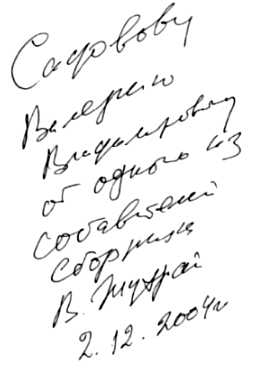 Садовову
Валерию
Владимировичу
от одного из
составителей
сборника
В. Шурай
2.12.2004г